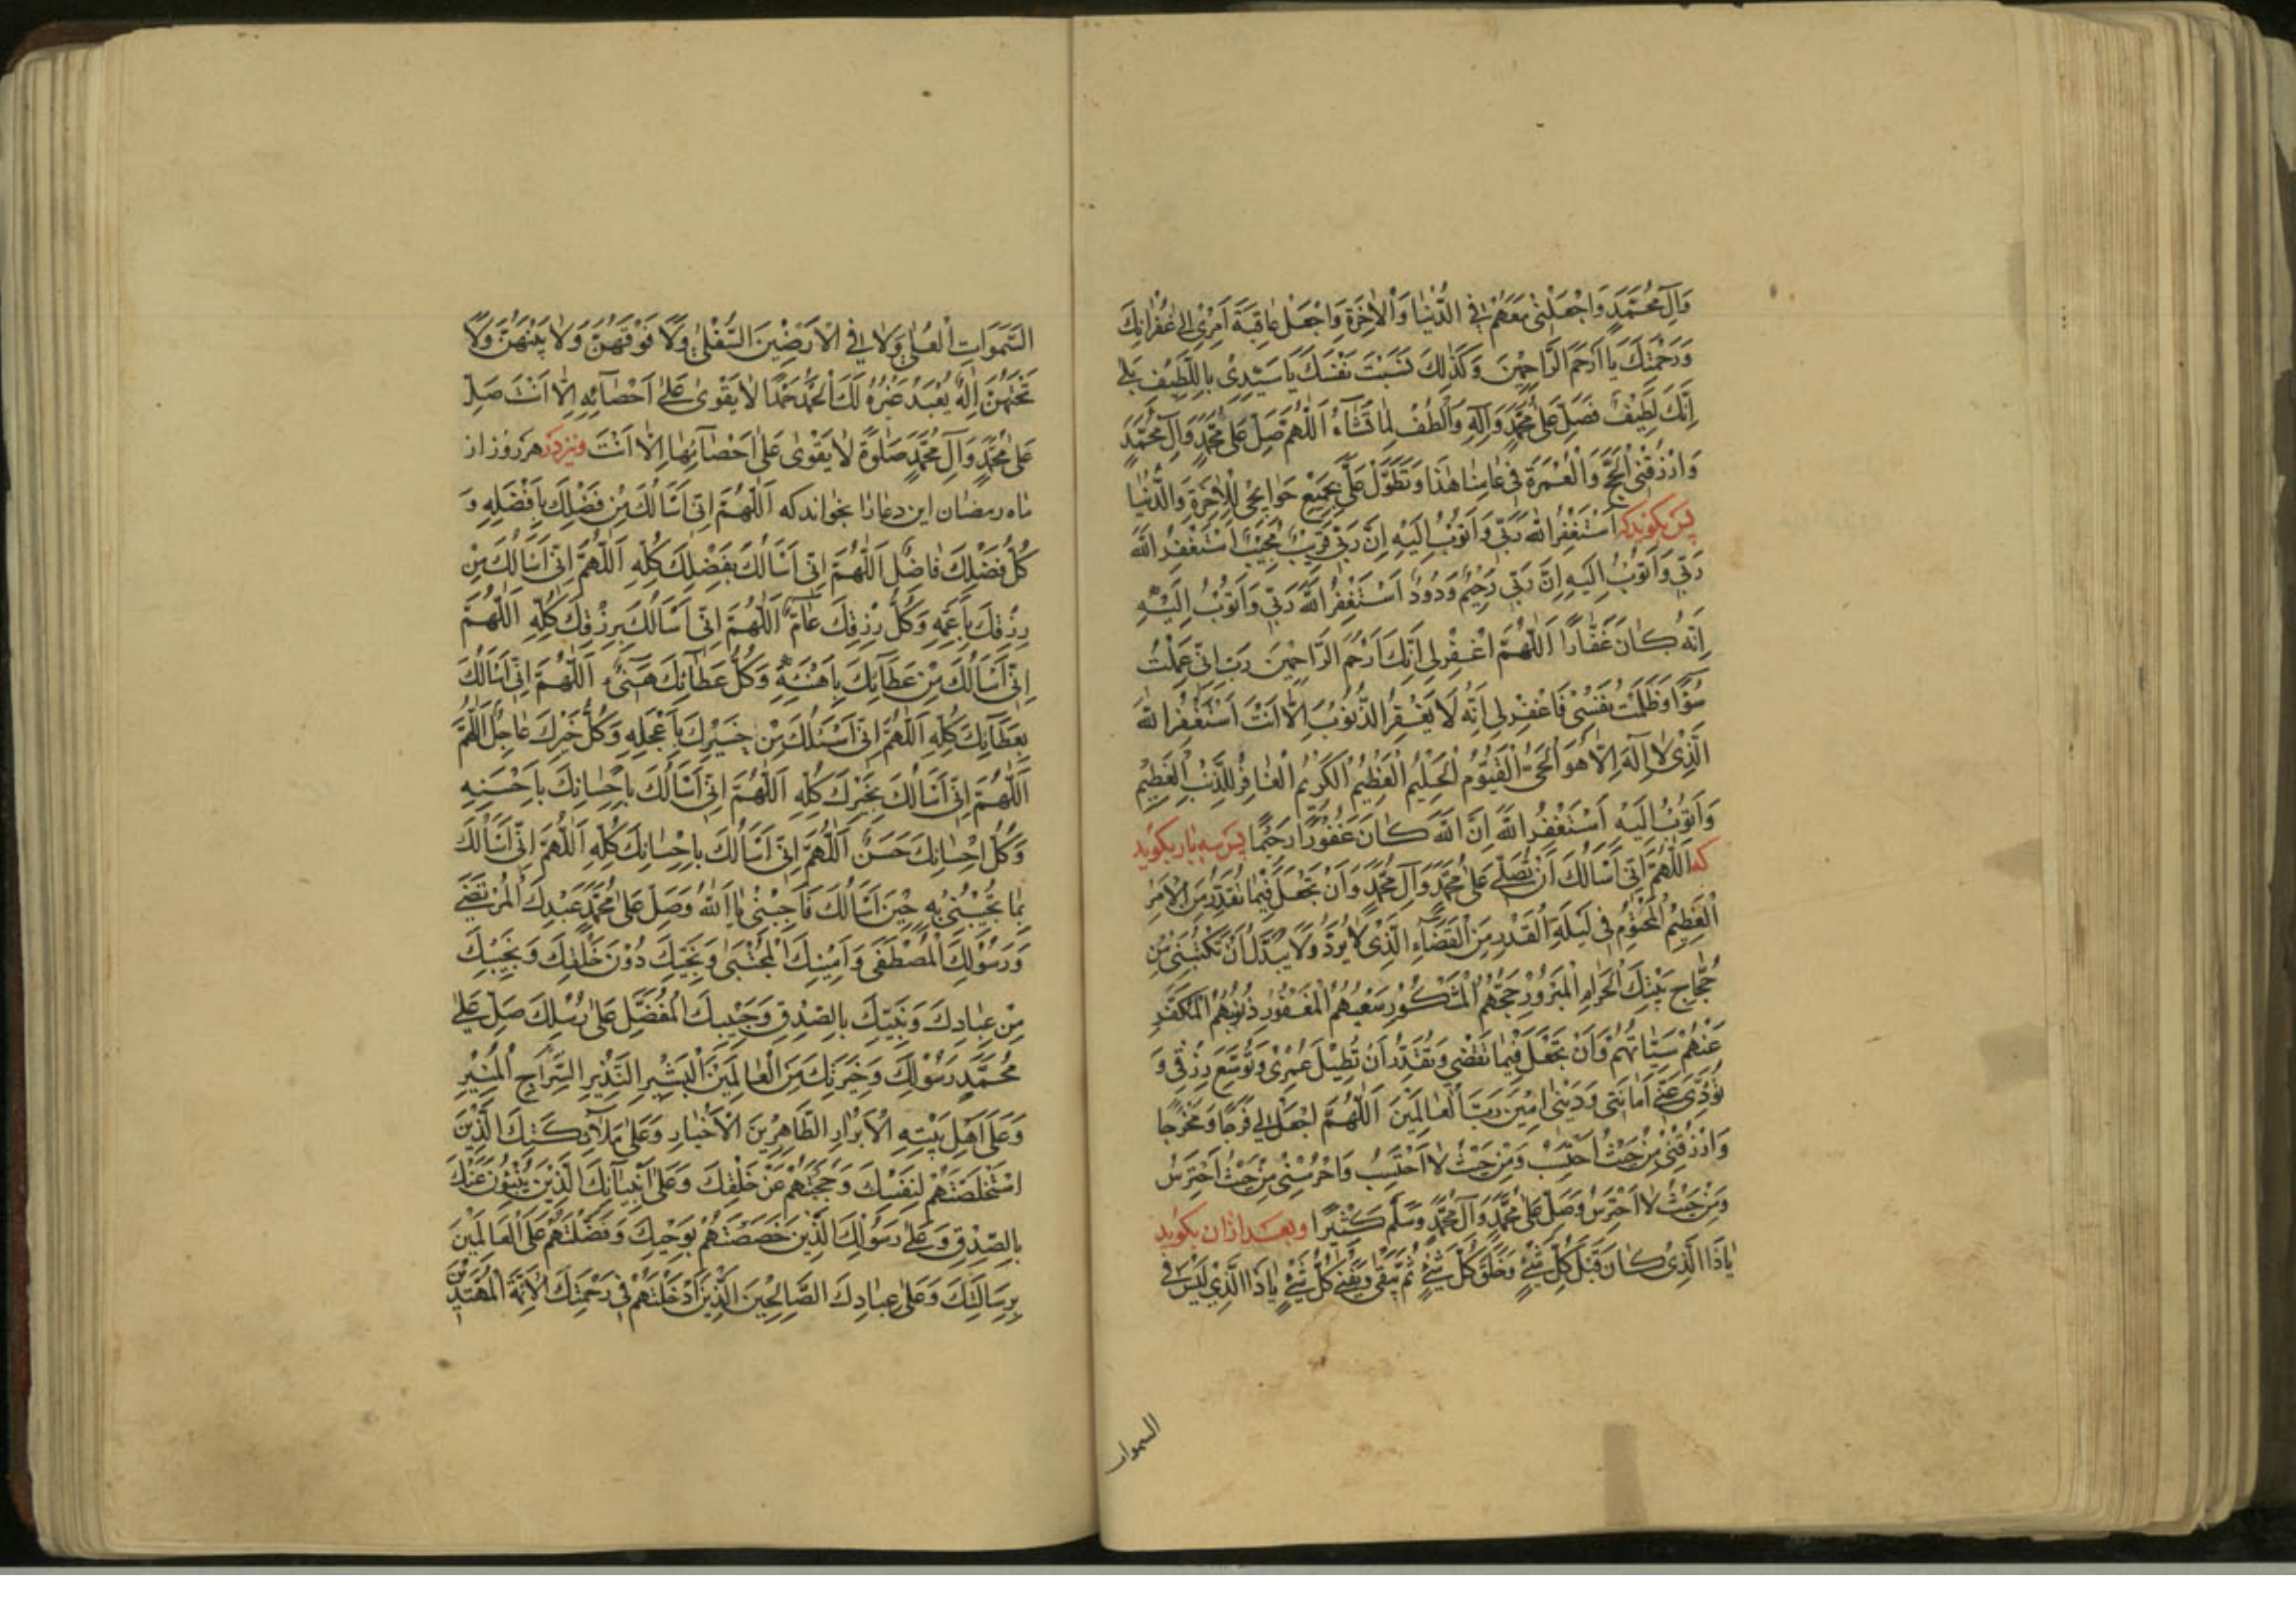 وَآلِ مُحَمَّدٍ وَاجْعَلْنِي مَعَهُمْ فِي الدُّنْيَا وَالْاٰخِرَةِ وَاجْعَلْ عَاقِبَةَ اَمْرِي اِلىٰ غُفْرَانِكَ
وَرَحْمَتِكَ يَا اَرْحَمَ الرَّاحِمِينَ وَكَذٰلِكَ نَسَبْتَ نَفْسَكَ يَا سَيِّدِي بِاللَّطِيفِ بَلىٰ
اِنَّكَ لَطِيفٌ فَصَلِّ عَلىٰ مُحَمَّدٍ وَاٰلِهِ وَالْطُفْ لِمَا تَشَاءُ اَللّٰهُمَّ صَلِّ عَلىٰ مُحَمَّدٍ وَآلِ مُحَمَّدٍ
وَارْزُقْنِي الْحَجَّ وَالْعُمْرَةَ فِي عَامِنَا هٰذَا وَتَطَوَّلْ عَلَيَّ بِجَمِيعِ حَوَايِجِي لِلْاٰخِرَةِ وَالدُّنْيَا
پس بکوید که اَسْتَغْفِرُ اللّٰهَ رَبِّي وَاَتُوبُ اِلَيْهِ اِنَّ رَبِّي قَرِيبٌ مُجِيبٌ اَسْتَغْفِرُ اللّٰهَ
رَبِّي وَاَتُوبُ اِلَيْهِ اِنَّ رَبِّي رَحِيمٌ وَدُودٌ اَسْتَغْفِرُ اللّٰهَ رَبِّي وَاَتُوبُ اِلَيْهِ
اِنَّهُ كَانَ غَفَّارًا اَللّٰهُمَّ اغْفِرْ لِي اِنَّكَ اَرْحَمُ الرَّاحِمِينَ رَبِّ اِنِّي عَمِلْتُ
سُوْءًا وَظَلَمْتُ نَفْسِي فَاغْفِرْ لِي اِنَّهُ لَا يَغْفِرُ الذُّنُوبَ اِلَّا اَنْتَ اَسْتَغْفِرُ اللّٰهَ
الَّذِي لَا اِلٰهَ اِلَّا هُوَ الْحَيُّ الْقَيُّومُ الْحَلِيمُ الْعَظِيمُ الْكَرِيمُ الْغَافِرُ لِلذَّنْبِ الْعَظِيمِ
وَاَتُوبُ اِلَيْهِ اَسْتَغْفِرُ اللّٰهَ اِنَّ اللّٰهَ كَانَ غَفُورًا رَحِيمًا پس سه بار بکوید
که اَللّٰهُمَّ اِنِّي اَسْاَلُكَ اَنْ تُصَلِّيَ عَلىٰ مُحَمَّدٍ وَآلِ مُحَمَّدٍ وَاَنْ تَجْعَلَ فِيمَا تُقَدِّرُ مِنَ الْاَمْرِ
الْعَظِيمِ الْمَحْتُومِ فِي لَيْلَةِ الْقَدْرِ مِنَ الْقَضَاءِ الَّذِي لَا يُرَدُّ وَلَا يُبَدَّلُ اَنْ تَكْتُبَنِي مِنْ
حُجَّاجِ بَيْتِكَ الْحَرَامِ الْمَبْرُورِ حَجُّهُمُ الْمَشْكُورِ سَعْيُهُمُ الْمَغْفُورِ ذُنُوبُهُمُ الْمُكَفَّرِ
عَنْهُمْ سَيِّئَاتُهُمْ وَاَنْ تَجْعَلَ فِيمَا تَقْضِي وَتُقَدِّرُ اَنْ تُطِيلَ عُمْرِي وَتُوَسِّعَ رِزْقِي وَ
تُؤَدِّيَ عَنِّي اَمَانَتِي وَدَيْنِي اٰمِينَ رَبَّ الْعَالَمِينَ اَللّٰهُمَّ اجْعَلْ لِي فَرَجًا وَمَخْرَجًا
وَارْزُقْنِي مِنْ حَيْثُ اَحْتَسِبُ وَمِنْ حَيْثُ لَا اَحْتَسِبُ وَاحْرُسْنِي مِنْ حَيْثُ اَحْتَرِسُ
وَمِنْ حَيْثُ لَا اَحْتَرِسُ وَصَلِّ عَلىٰ مُحَمَّدٍ وَآلِ مُحَمَّدٍ وَسَلِّمْ كَثِيرًا وبعد از ان بکوید
يَا ذَا الَّذِي كَانَ قَبْلَ كُلِّ شَيْءٍ وَخَلَقَ كُلَّ شَيْءٍ ثُمَّ يَبْقىٰ وَيَفْنىٰ كُلُّ شَيْءٍ يَا ذَا الَّذِي لَيْسَ فِي
السموات
السَّمٰوَاتِ الْعُلىٰ وَلَا فِي الْاَرَضِينَ السُّفْلىٰ وَلَا فَوْقَهُنَّ وَلَا بَيْنَهُنَّ وَلَا
تَحْتَهُنَّ اِلٰهٌ يُعْبَدُ غَيْرُهُ لَكَ الْحَمْدُ حَمْدًا لَا يَقْوىٰ عَلىٰ اَحْصَائِهِ اِلَّا اَنْتَ صَلِّ
عَلىٰ مُحَمَّدٍ وَآلِ مُحَمَّدٍ صَلٰوةً لَا يَقْوىٰ عَلىٰ اَحْصَائِهَا اِلَّا اَنْتَ ونیز در هر روز از
ماه رمضان این دعا را بخواند که اَللّٰهُمَّ اِنِّي اَسْاَلُكَ مِنْ فَضْلِكَ بِاَفْضَلِهِ وَ
كُلُّ فَضْلِكَ فَاضِلٌ اَللّٰهُمَّ اِنِّي اَسْاَلُكَ بِفَضْلِكَ كُلِّهِ اَللّٰهُمَّ اِنِّي اَسْاَلُكَ مِنْ
رِزْقِكَ بِاَعَمِّهِ وَكُلُّ رِزْقِكَ عَامٌّ اَللّٰهُمَّ اِنِّي اَسْاَلُكَ بِرِزْقِكَ كُلِّهِ اَللّٰهُمَّ
اِنِّي اَسْاَلُكَ مِنْ عَطَائِكَ بِاَهْنَئِهِ وَكُلُّ عَطَائِكَ هَنِيءٌ اَللّٰهُمَّ اِنِّي اَسْاَلُكَ
بِعَطَائِكَ كُلِّهِ اَللّٰهُمَّ اِنِّي اَسْئَلُكَ مِنْ خَيْرِكَ بِاَعْجَلِهِ وَكُلُّ خَيْرِكَ عَاجِلٌ اَللّٰهُمَّ
اَللّٰهُمَّ اِنِّي اَسْاَلُكَ بِخَيْرِكَ كُلِّهِ اَللّٰهُمَّ اِنِّي اَسْاَلُكَ بِاِحْسَانِكَ بِاَحْسَنِهِ
وَكُلُّ اِحْسَانِكَ حَسَنٌ اَللّٰهُمَّ اِنِّي اَسْاَلُكَ بِاِحْسَانِكَ كُلِّهِ اَللّٰهُمَّ اِنِّي اَسْاَلُكَ
بِمَا تُجِيبُنِي بِهِ حِينَ اَسْاَلُكَ فَاَجِبْنِي يَا اَللّٰهُ وَصَلِّ عَلىٰ مُحَمَّدٍ عَبْدِكَ الْمُرْتَضىٰ
وَرَسُولِكَ الْمُصْطَفىٰ وَاَمِينِكَ الْمُجْتَبىٰ وَنَجِيِّكَ دُونَ خَلْقِكَ وَنَجِيبِكَ
مِنْ عِبَادِكَ وَنَبِيِّكَ بِالصِّدْقِ وَحَبِيبِكَ الْمُفَضَّلِ عَلىٰ رُسُلِكَ صَلِّ عَلىٰ
مُحَمَّدٍ رَسُولِكَ وَخِيَرَتِكَ مِنَ الْعَالَمِينَ الْبَشِيرِ النَّذِيرِ السِّرَاجِ الْمُنِيرِ
وَعَلىٰ اَهْلِ بَيْتِهِ الْاَبْرَارِ الطَّاهِرِينَ الْاَخْيَارِ وَعَلىٰ مَلَآئِكَتِكَ الَّذِينَ
اسْتَخْلَصْتَهُمْ لِنَفْسِكَ وَحَجَبْتَهُمْ عَنْ خَلْقِكَ وَعَلىٰ اَنْبِيَائِكَ الَّذِينَ يُنْبِئُونَ عَنْكَ
بِالصِّدْقِ وَعَلىٰ رَسُولِكَ الَّذِينَ خَصَصْتَهُمْ بِوَحْيِكَ وَفَضَّلْتَهُمْ عَلَى الْعَالَمِينَ
بِرِسَالَتِكَ وَعَلىٰ عِبَادِكَ الصَّالِحِينَ الَّذِينَ اَدْخَلْتَهُمْ فِي رَحْمَتِكَ الْاَئِمَّةِ الْمُهْتَدِينَ